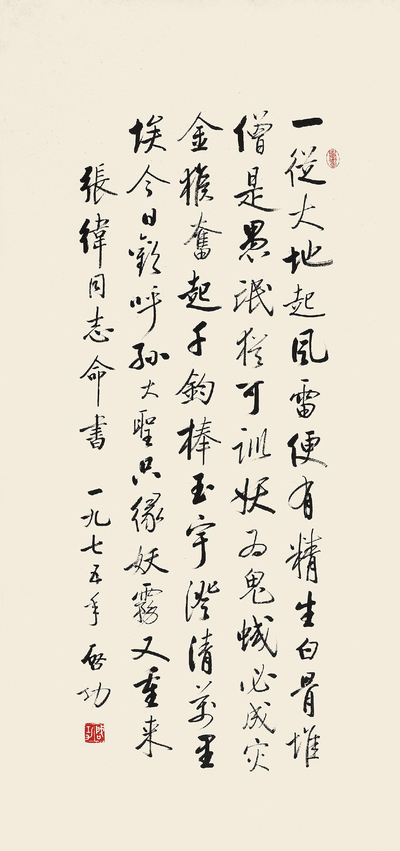 一從大地起風雷便有精生白骨堆
僧是愚氓猶可訓妖為鬼蜮必成灾
金猴奮起千鈞棒玉宇澄清萬里
埃今日歡呼孫大聖只緣妖霧又重来
張緯同志命書 一九七五年 啟功